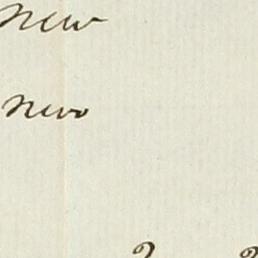 new
new